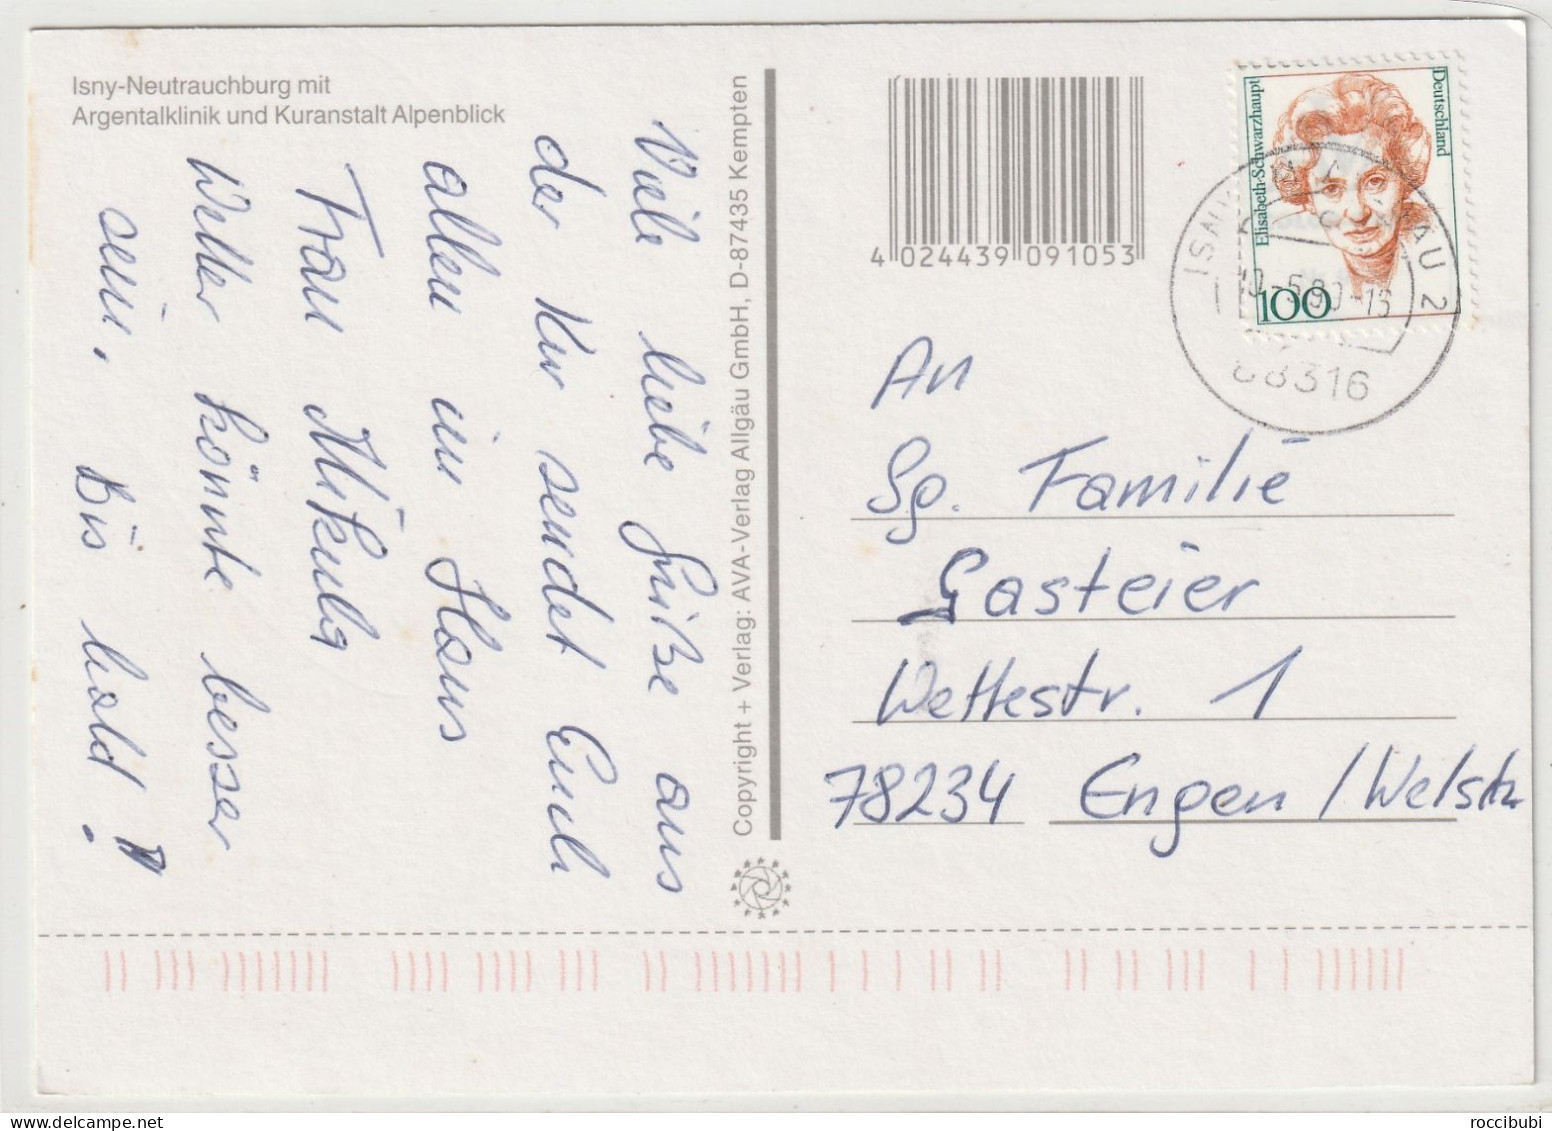 Isny-Neutrauchburg mit
Argentalklinik und Kuranstalt Alpenblick
Viele liebe Grüße aus
der Kur sendet Euch
allen im Haus
Frau Mikula
Wetter könnte besser
sein. Bis bald!
Copyright + Verlag: AVA-Verlag Allgäu GmbH, D-87435 Kempten
4 024439 091053
Deutschland
Elisabeth Schwarzhaupt
100
88316
An
Sg. Familie
Gasteier
Wettestr. 1
78234 Engen /Welsch
roccibubi